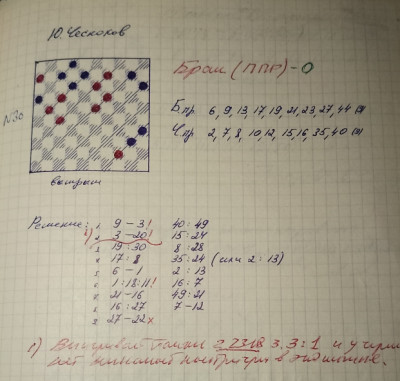 Ю. Чесноков
Брак (ППР) - О
№30
Б пр 6, 9, 13, 17, 19, 21, 23, 27, 44 (9)
Ч пр 2, 7, 8, 10, 12, 15, 16, 35, 40 (9)
выигрыш
Решение: 1. 9 - 3! 40 : 49
2. 3 - 20! 15 : 24
3. 19 : 30 8 : 28
4. 17 : 8 35 : 24 (или 2 : 13)
5. 6 - 1 2 : 13
6. 1 : 18 : 11! 16 : 7
7. 21 - 16 49 : 21
8. 16 : 27 7 - 12
9. 27 - 22 x
1) Выигрывает 3. 3 : 1 и у
нет в